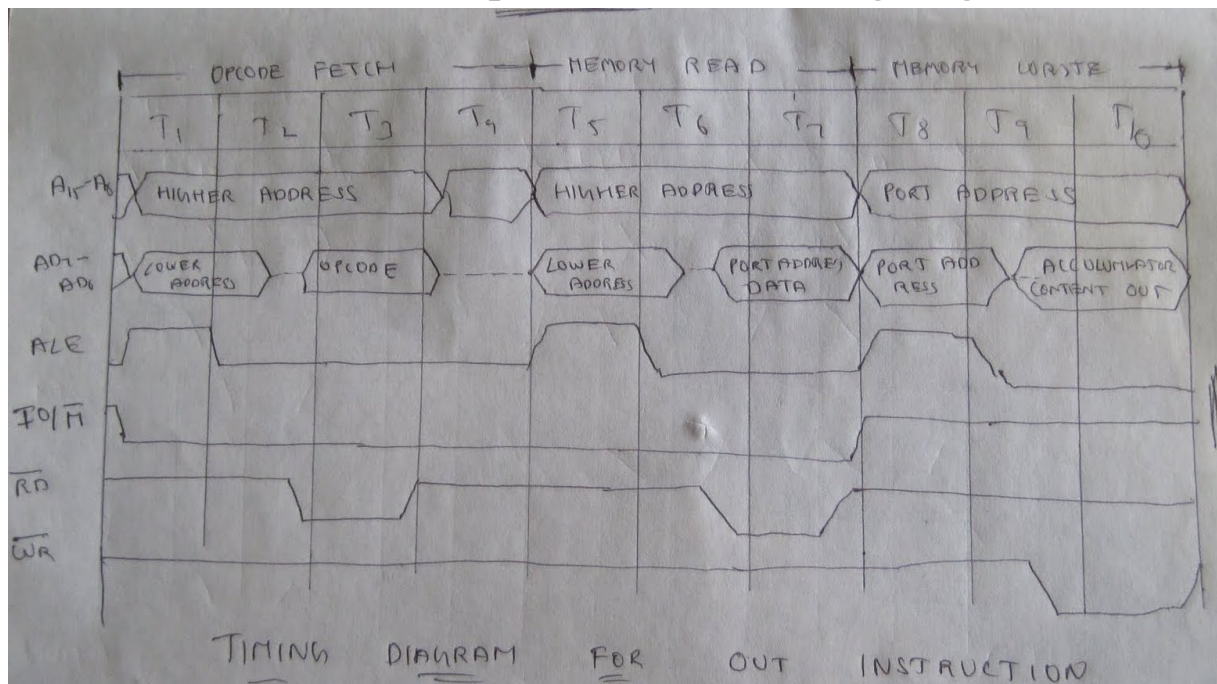 OPCODE FETCH MEMORY READ MEMORY WRITE
T1 T2 T3 T4 T5 T6 T7 T8 T9 T10
A15-A8 HIGHER ADDRESS HIGHER ADDRESS PORT ADDRESS
AD7-AD0 LOWER ADDRESS OPCODE LOWER ADDRESS PORT ADDRES DATA PORT ADD RESS ACCUUMLATOR CONTENT OUT
ALE
IO/M̅
R̅D̅
W̅R̅
TIMING DIAGRAM FOR OUT INSTRUCTION